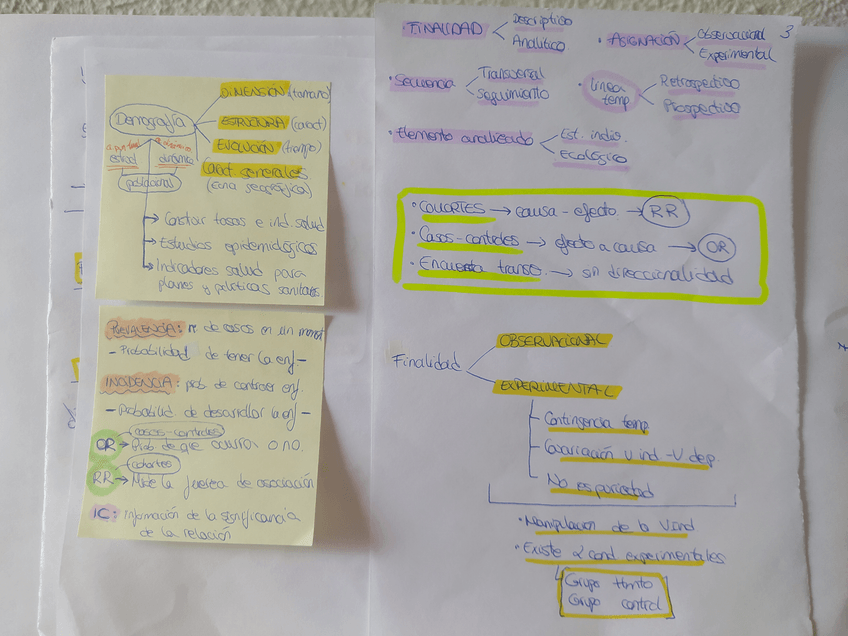 Demografía
DIMENSIÓN (tamaño)
ESTRUCTURA (caract)
EVOLUCIÓN (tiempo)
Caract generales
(zona geográfica)
estud
dinámica
población
→ Constuir tasas e ind. salud
→ Estudios epidemiológicos
→ Indicadores salud para
planes y políticas sanitarias
PREVALENCIA: nº de casos en un moment
- Probabilidad de tener la enf -
INCIDENCIA: prob. de contraer enf.
- Probabilidad de desarrollar la enf -
casos-controles
OR → Prob de que ocurra o no.
cohortes
RR → Mide la fuerza de asociación
IC: Información de la significancia
de la relación
3
• FINALIDAD
Descriptivo
Analítico
• ASIGNACIÓN
Observacional
Experimental
• Secuencia
Transversal
Seguimiento
• Línea
temp
Retrospectivo
Prospectivo
• Elemento analizado
Est. indiv.
Ecológico
• COHORTES → causa - efecto → RR
• Casos - controles → efecto a causa → OR
• Encuesta transv. → sin direccionalidad
Finalidad
OBSERVACIONAL
EXPERIMENTAL
Contingencia temp
Covariación V ind. - V dep.
No espuriedad
• Manipulación de la V ind
• Existe 2 cond experimentales
Grupo tmnto
Grupo control